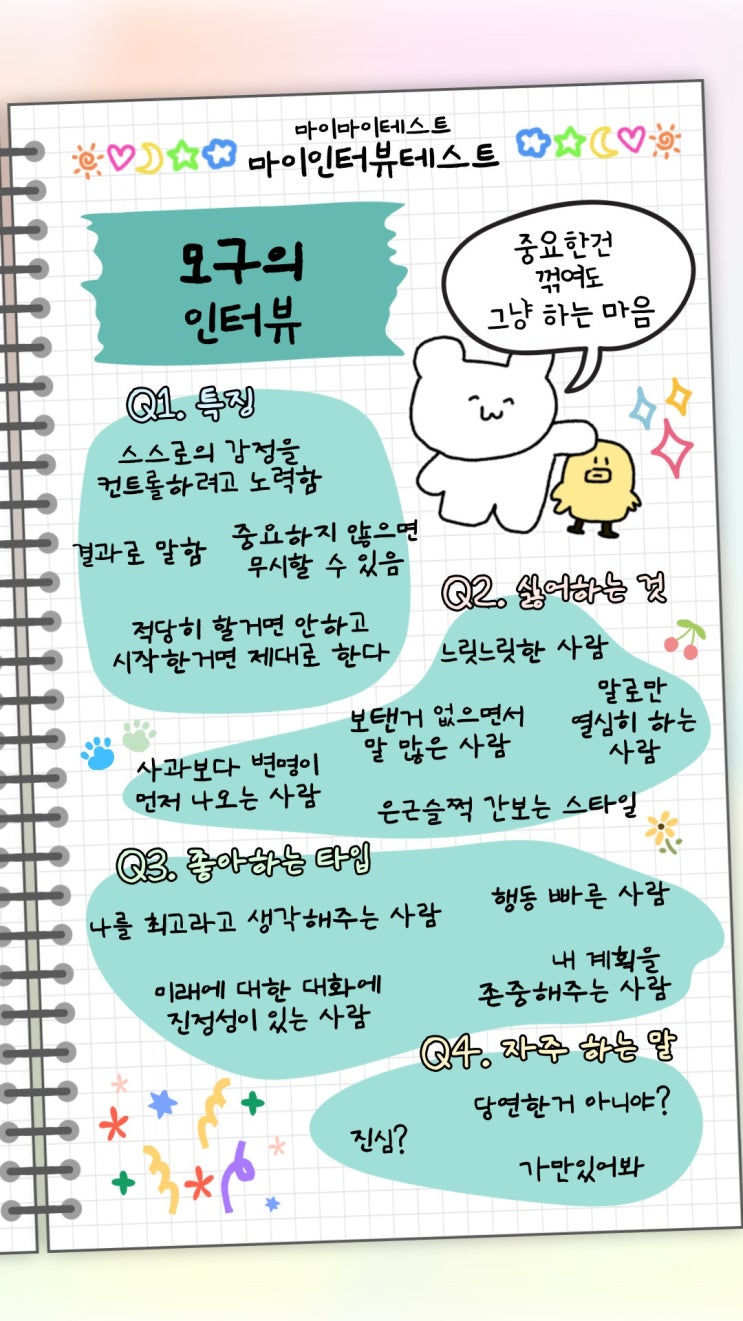 마이마이테스트
마이인터뷰테스트
모구의
인터뷰
중요한건
꺾여도
그냥 하는 마음
Q1. 특징
스스로의 감정을
컨트롤하려고 노력함
결과로 말함
중요하지 않으면
무시할 수 있음
적당히 할거면 안하고
시작한거면 제대로 한다
Q2. 싫어하는 것
느릿느릿한 사람
말로만
열심히 하는
사람
보탠거 없으면서
말 많은 사람
사과보다 변명이
먼저 나오는 사람
은근슬쩍 간보는 스타일
Q3. 좋아하는 타입
나를 최고라고 생각해주는 사람
행동 빠른 사람
미래에 대한 대화에
진정성이 있는 사람
내 계획을
존중해주는 사람
Q4. 자주 하는 말
당연한거 아니야?
진심?
가만있어봐